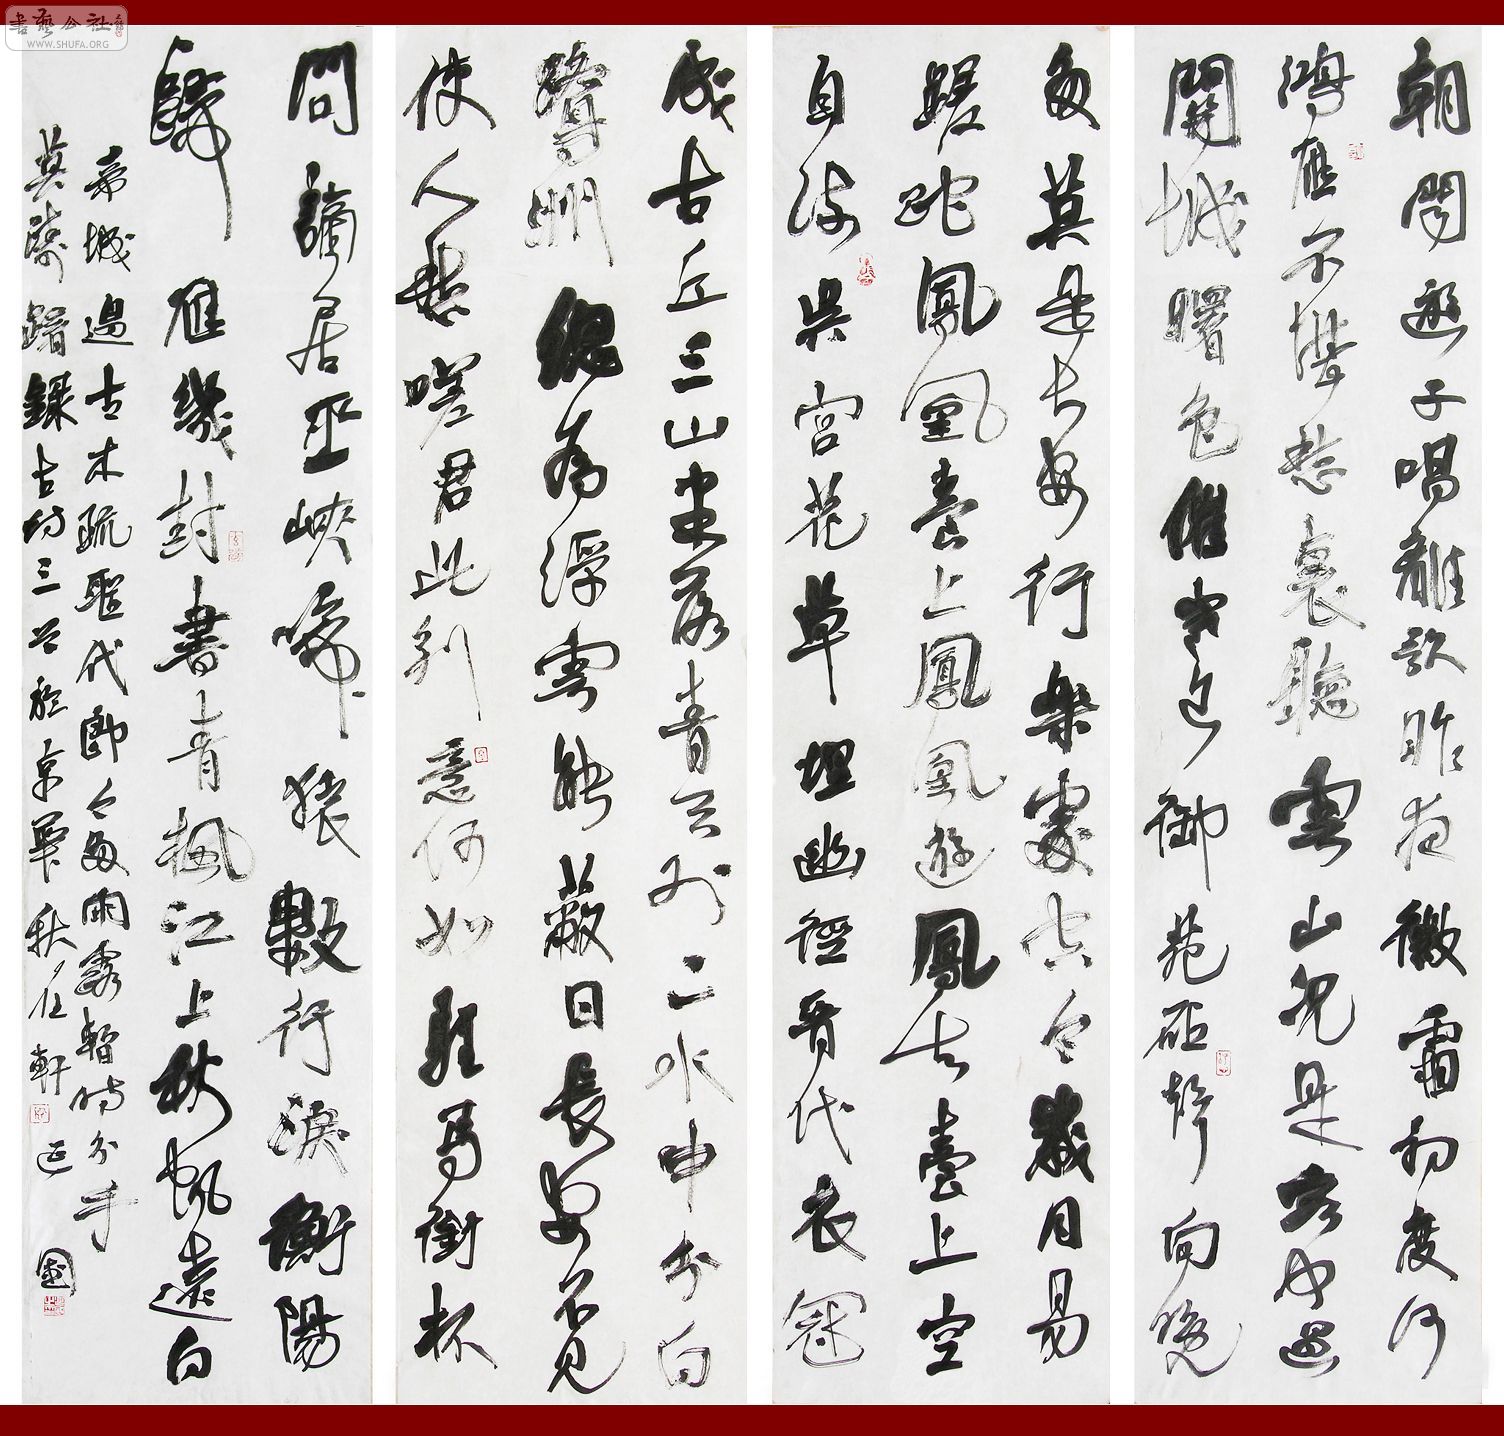 書藝公社
WWW.SHUFA.ORG
朝聞遊子唱離歌昨夜微霜初度河
鴻雁不堪愁裏聽雲山況是客中過
關城曙色催寒近御苑砧聲向晚
多莫是長安行樂處空令歲月易
蹉跎鳳凰臺上鳳凰遊鳳去臺上空
自流吳宮花草埋幽徑晉代衣冠
成古丘三山半落青天外二水中分白
鷺洲總為浮雲能蔽日長安不見
使人愁嗟君此別意何如駐馬銜杯
問謫居巫峽啼猿數行淚衡陽
歸雁幾封書青楓江上秋帆遠白
帝城邊古木疏聖代即今多雨露暫時分手
莫躊躇錄古詩三首於京華秋石軒